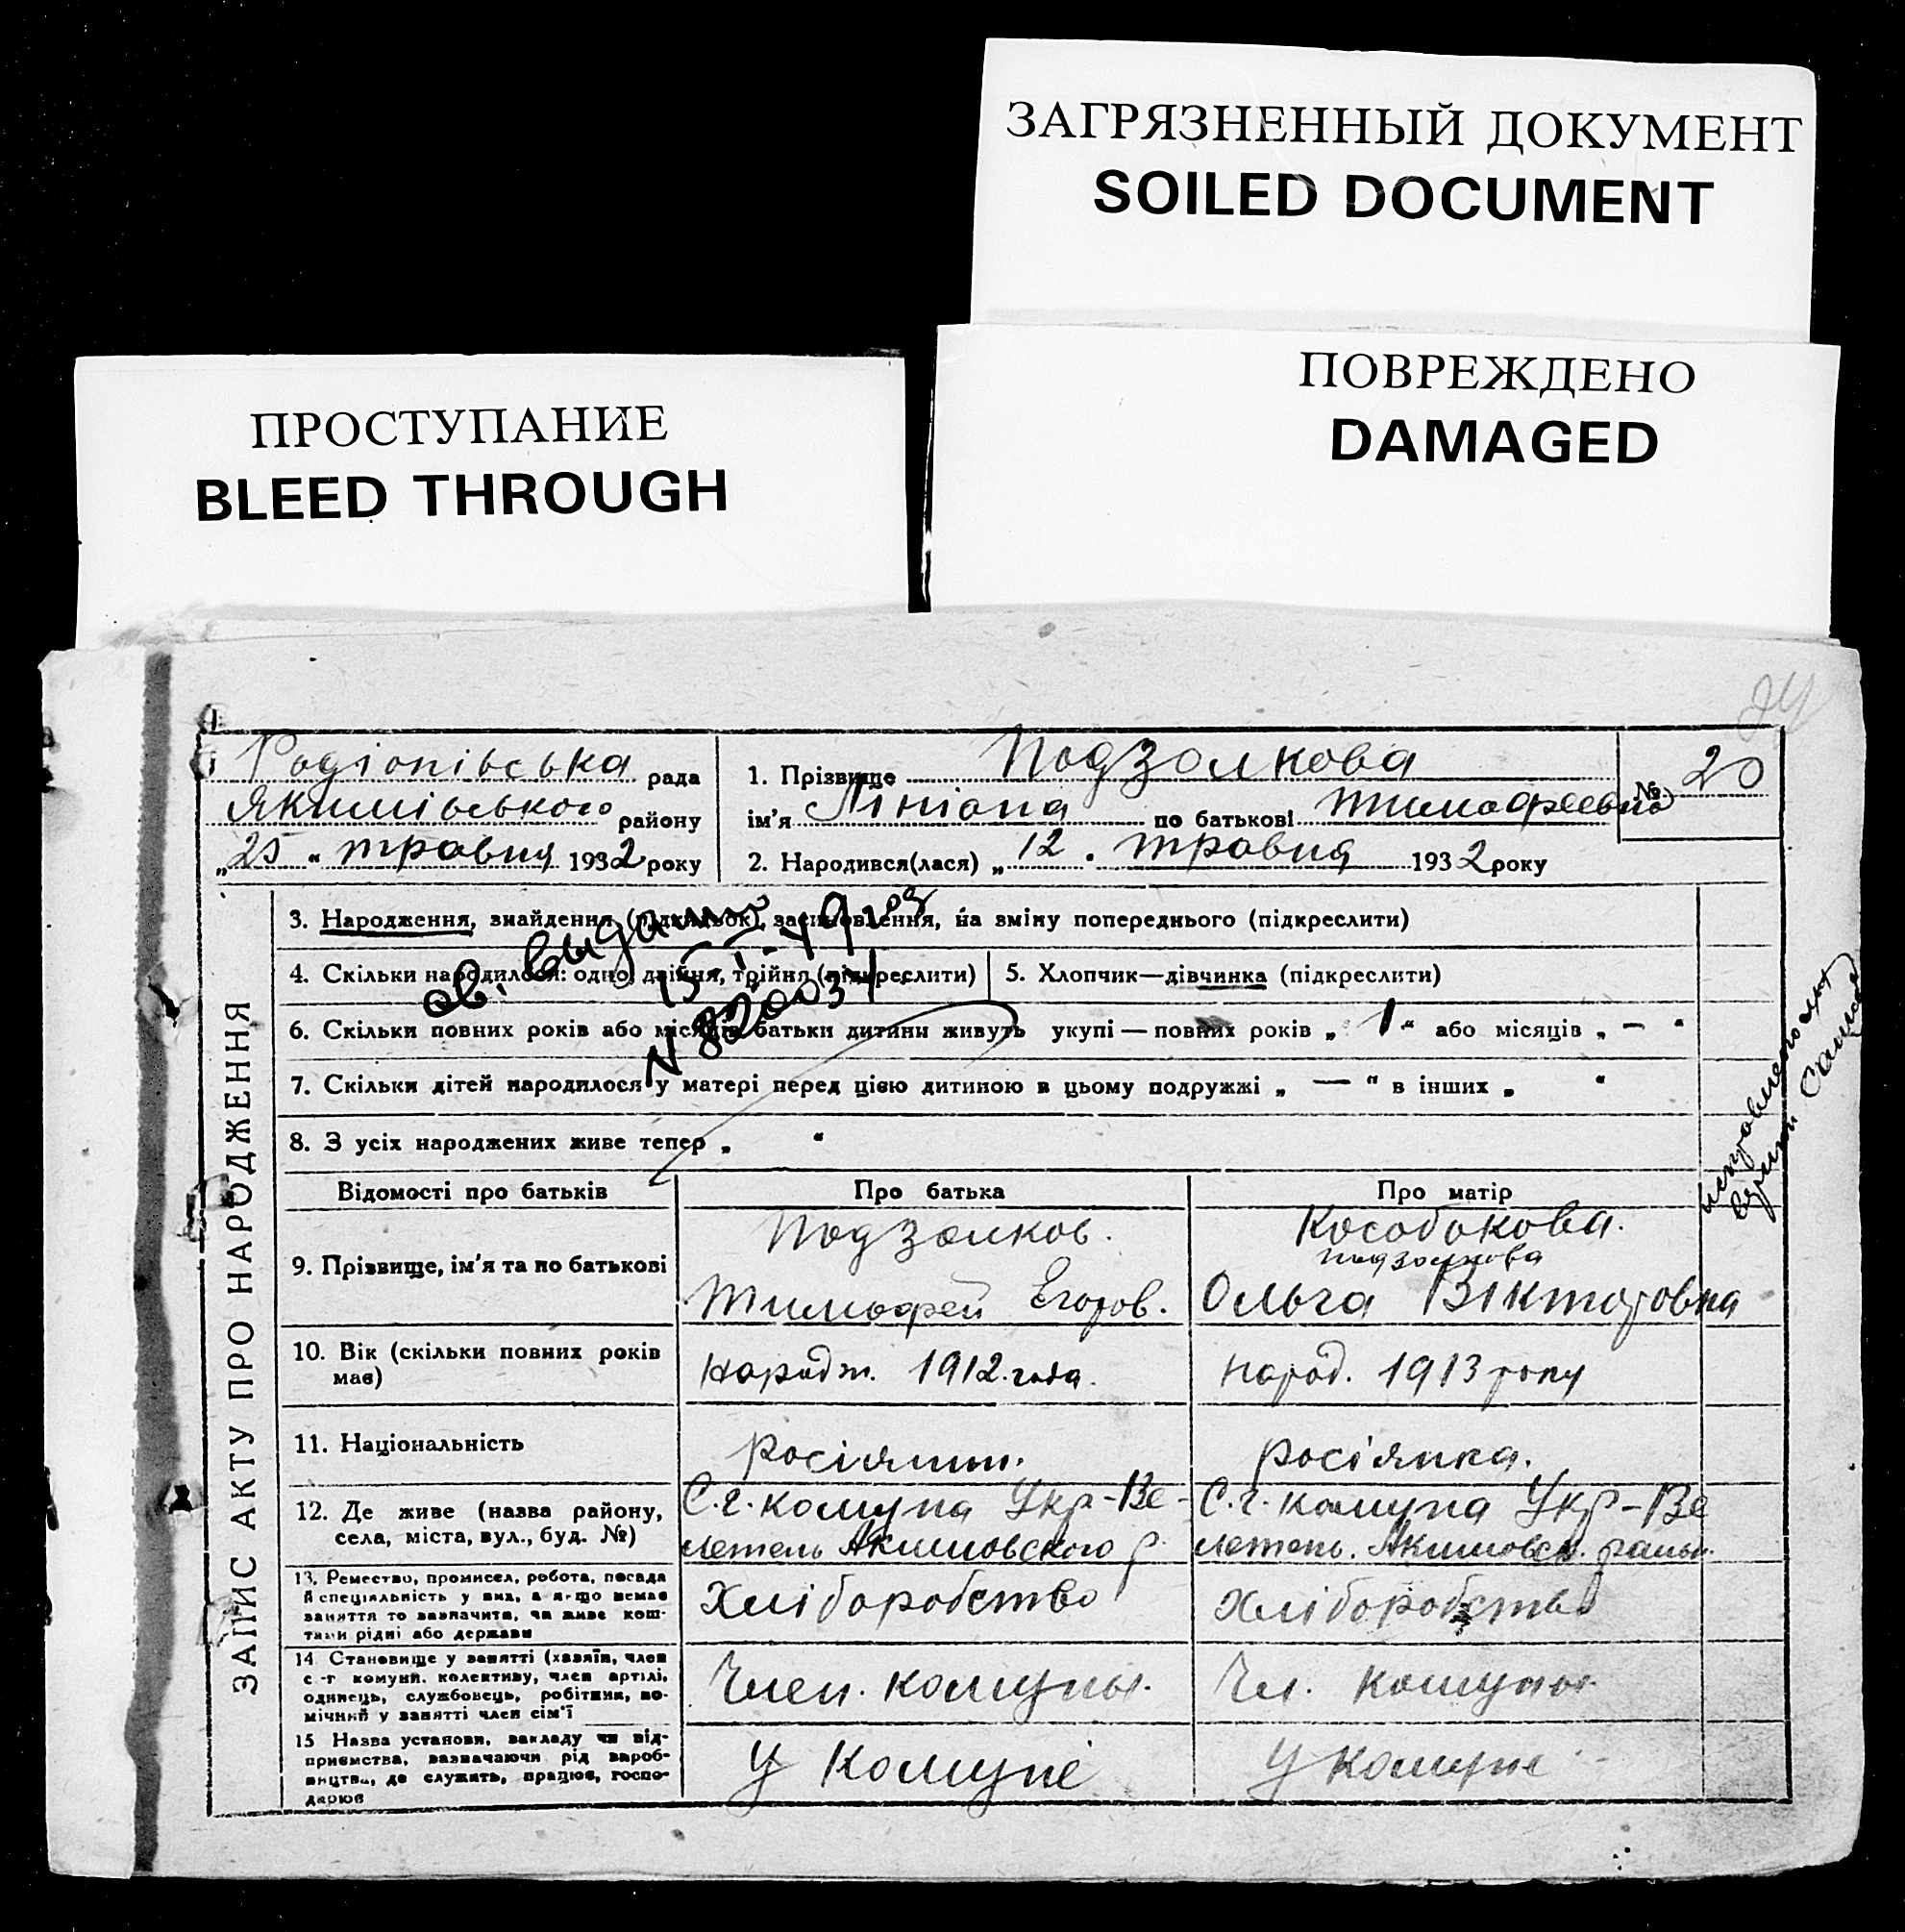 ЗАГРЯЗНЕННЫЙ ДОКУМЕНТ
SOILED DOCUMENT
ПОВРЕЖДЕНО
DAMAGED
ПРОСТУПАНИЕ
BLEED THROUGH
Родіонівська рада
Якимівського району
„25“ травня 1932 року
1. Прізвище Подзолкова
ім'я Лініана по батькові Тимофеевна
№ 20
2. Народився(лася) „12. травня 1932 року
ЗАПИС АКТУ ПРО НАРОДЖЕННЯ
3. Народження, знайдення (підкидьок), засиновлення, на зміну попереднього (підкреслити)
4. Скільки народилося: одно, двійня, трійня (підкреслити)
5. Хлопчик—дівчинка (підкреслити)
6. Скільки повних років або місяців батьки дитини живуть укупі — повних років „1“ або місяців „—“
7. Скільки дітей народилося у матері перед цією дитиною в цьому подружжі „—“ в інших „ “
8. З усіх народжених живе тепер „ “
св. выдано
N 820034
Відомості про батьків
Про батька
Про матір
9. Прізвище, ім'я та по батькові
Подзолков.
Тимофей Егоров.
Кособокова.
подзолкова
Ольга Вікторовна
10. Вік (скільки повних років має)
народж. 1912 года.
народ. 1913 року
11. Національність
росіянин.
росіянка.
12. Де живе (назва району,
села, міста, вул., буд. №)
С.г. комуна Укр-Ве-
летень Акимовского р.
С.г. комуна Укр-Ве
летень. Акимовск. район.
13. Ремество, промисел, робота, посада
й спеціяльність у них, а якщо немає
заняття то зазначити, чи живе кош-
тами рідні або держави
Хліборобство
Хліборобство
14. Становище у занятті (хазяїн, член
с-г комуни, колективу, член артілі,
одинець, службовець, робітник, по-
мічний у занятті член сім'ї
Член. комуны.
Чл. комуны.
15 Назва установи, закладу чи під-
приємства, зазначаючи рід вироб-
ництва, де служить, працює, госпо-
дарює
У Комуне
У комуне